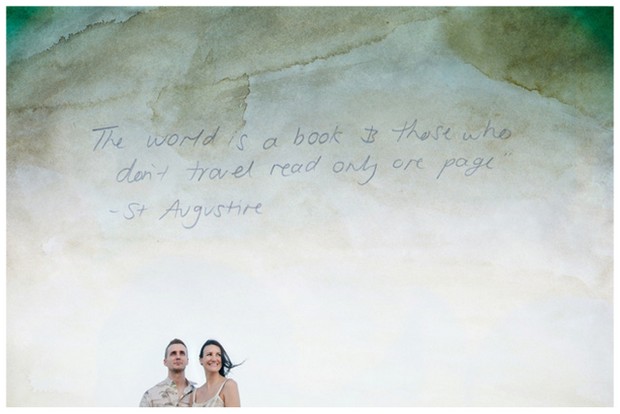 The world is a book & those who
don't travel read only one page"
- St Augustine